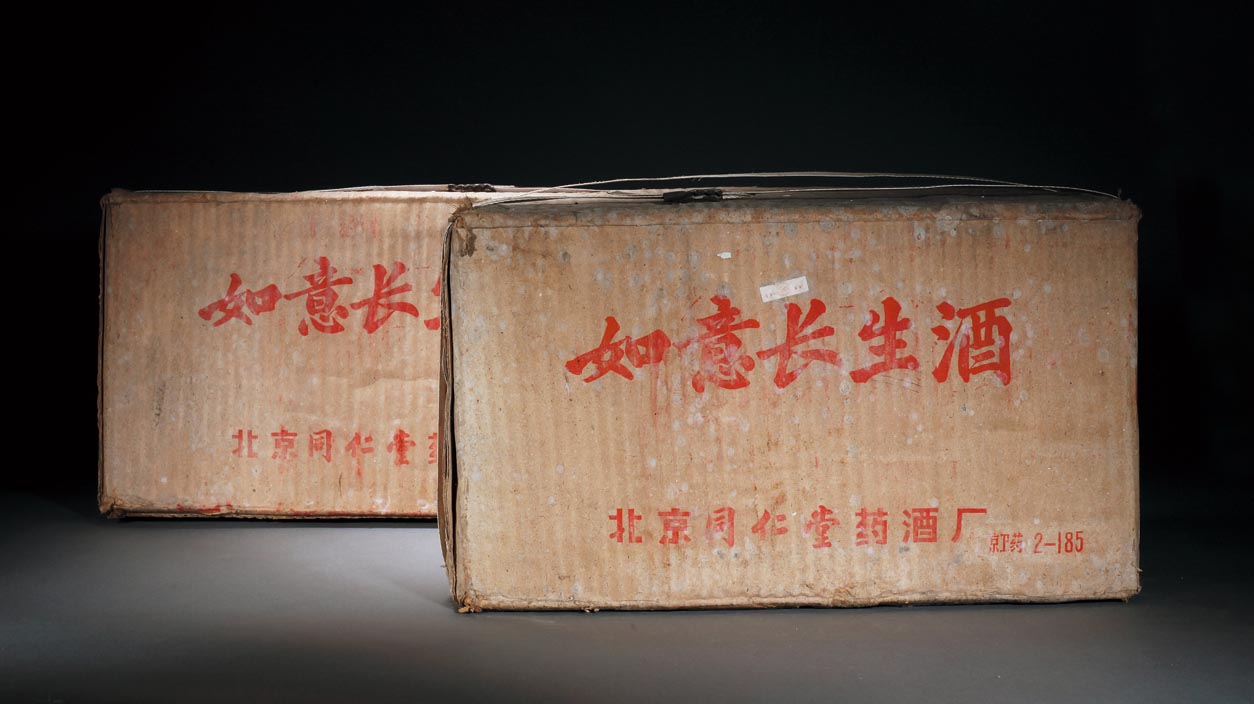 如意长生
北京同仁堂药
如意长生酒
北京同仁堂药酒厂
京卫药 2-185